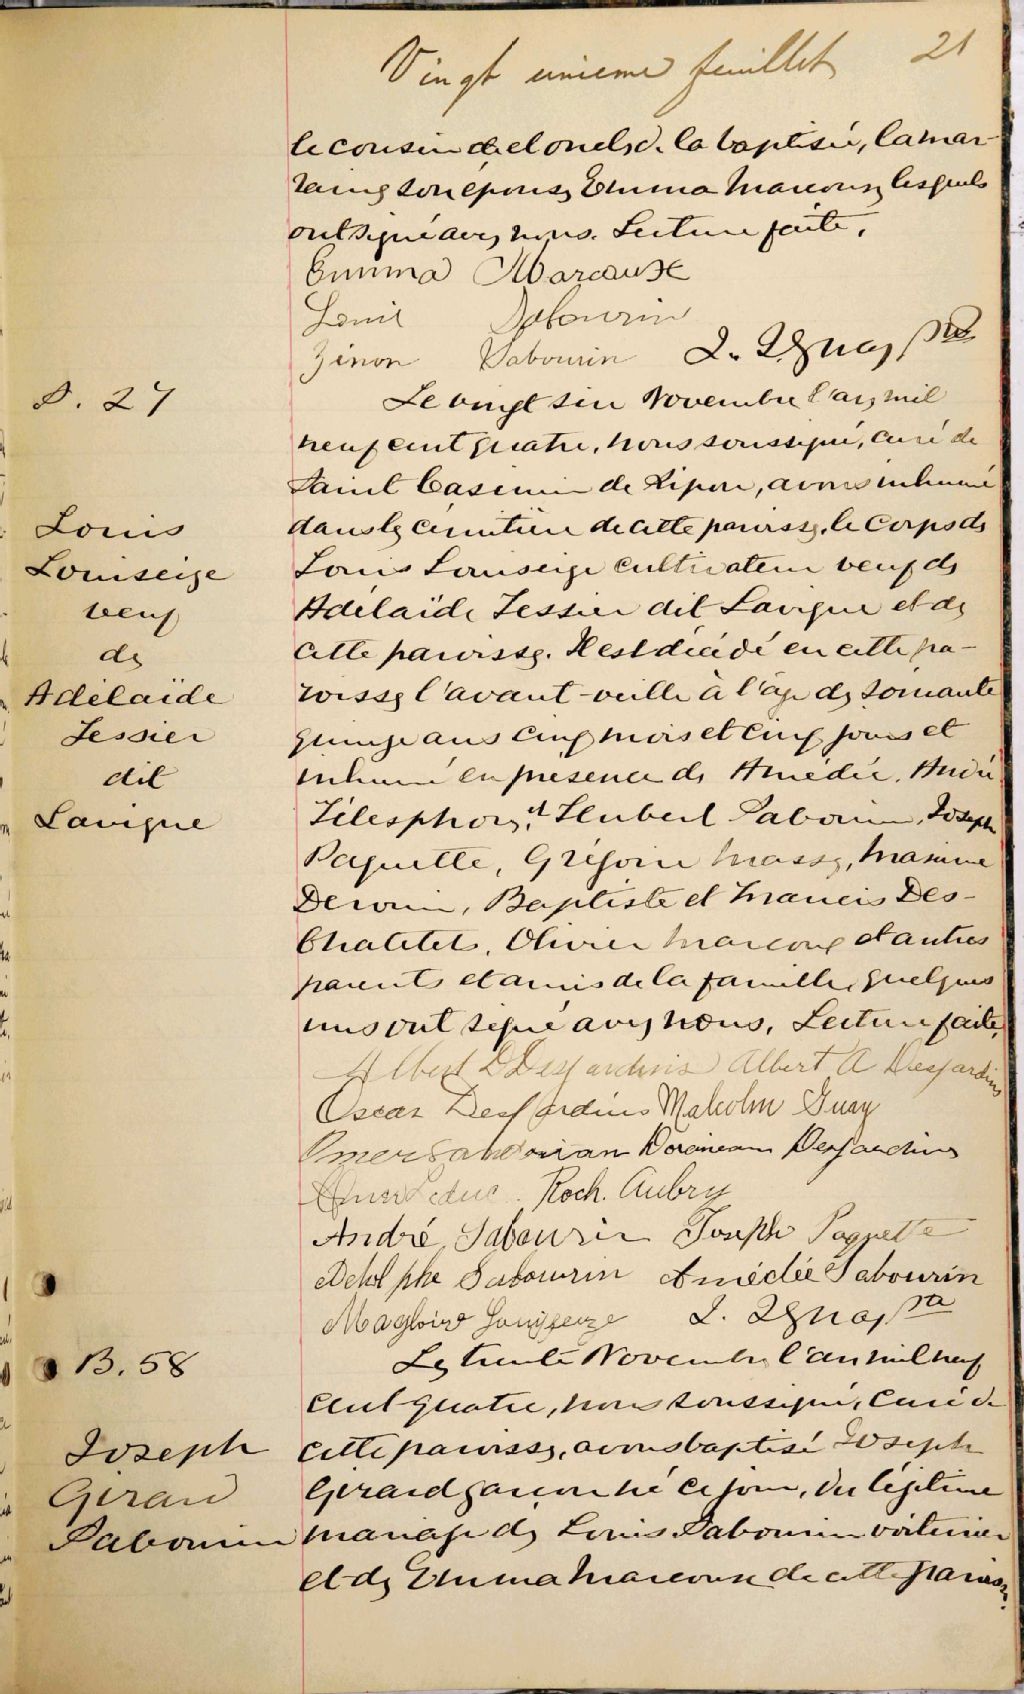 Vingt unieme feuillet 21
le cousin et l'oncle de la baptisée, la mar-
raine son épouse Emma Marcoux lesquels
ont signé avec nous. Lecture faite.
Emma Marcoux
Louis Sabourin
Zénon Sabourin J. I. Guay ptre
S. 27
Le vingt six Novembre l'an mil
neuf cent quatre, nous soussigné, curé de
Saint Casimir de Ripon, avons inhumé
Louis
dans le cimetière de cette paroisse, le corps de
Louiseize
Louis Louiseize cultivateur veuf de
veuf
Adélaïde Tessier dit Lavigne et de
de
cette paroisse. Il est décédé en cette pa-
Adélaïde
roisse l'avant-veille à l'âge de soixante
Tessier
quinze ans cinq mois et cinq jours et
dit
inhumé en présence de Amédée, André
Lavigne
Télesphore, et Hubert Sabourin, Joseph
Paquette, Grégoire Masse, Maxime
Derouin, Baptiste et Francis Des-
Chatelets, Olivier Marcoux et autres
parents et amis de la famille, quelques
uns ont signé avec nous. Lecture faite.
Albert D Desjardins Albert A Desjardins
Oscar Desjardins Malcolm Guay
Omer Desjardins
Omer Leduc. Roch. Aubry
André Sabourin Joseph Paquette
Adolphe Sabourin Amédée Sabourin
Magloire Louiseize J. I. Guay ptre
B. 58
Le trente Novembre l'an mil neuf
cent quatre, nous soussigné, curé de
Joseph
cette paroisse, avons baptisé Joseph
Girard
Girard garçon né ce jour, du légitime
Sabourin
mariage de Louis Sabourin voiturier
et de Emma Marcoux de cette paroisse.